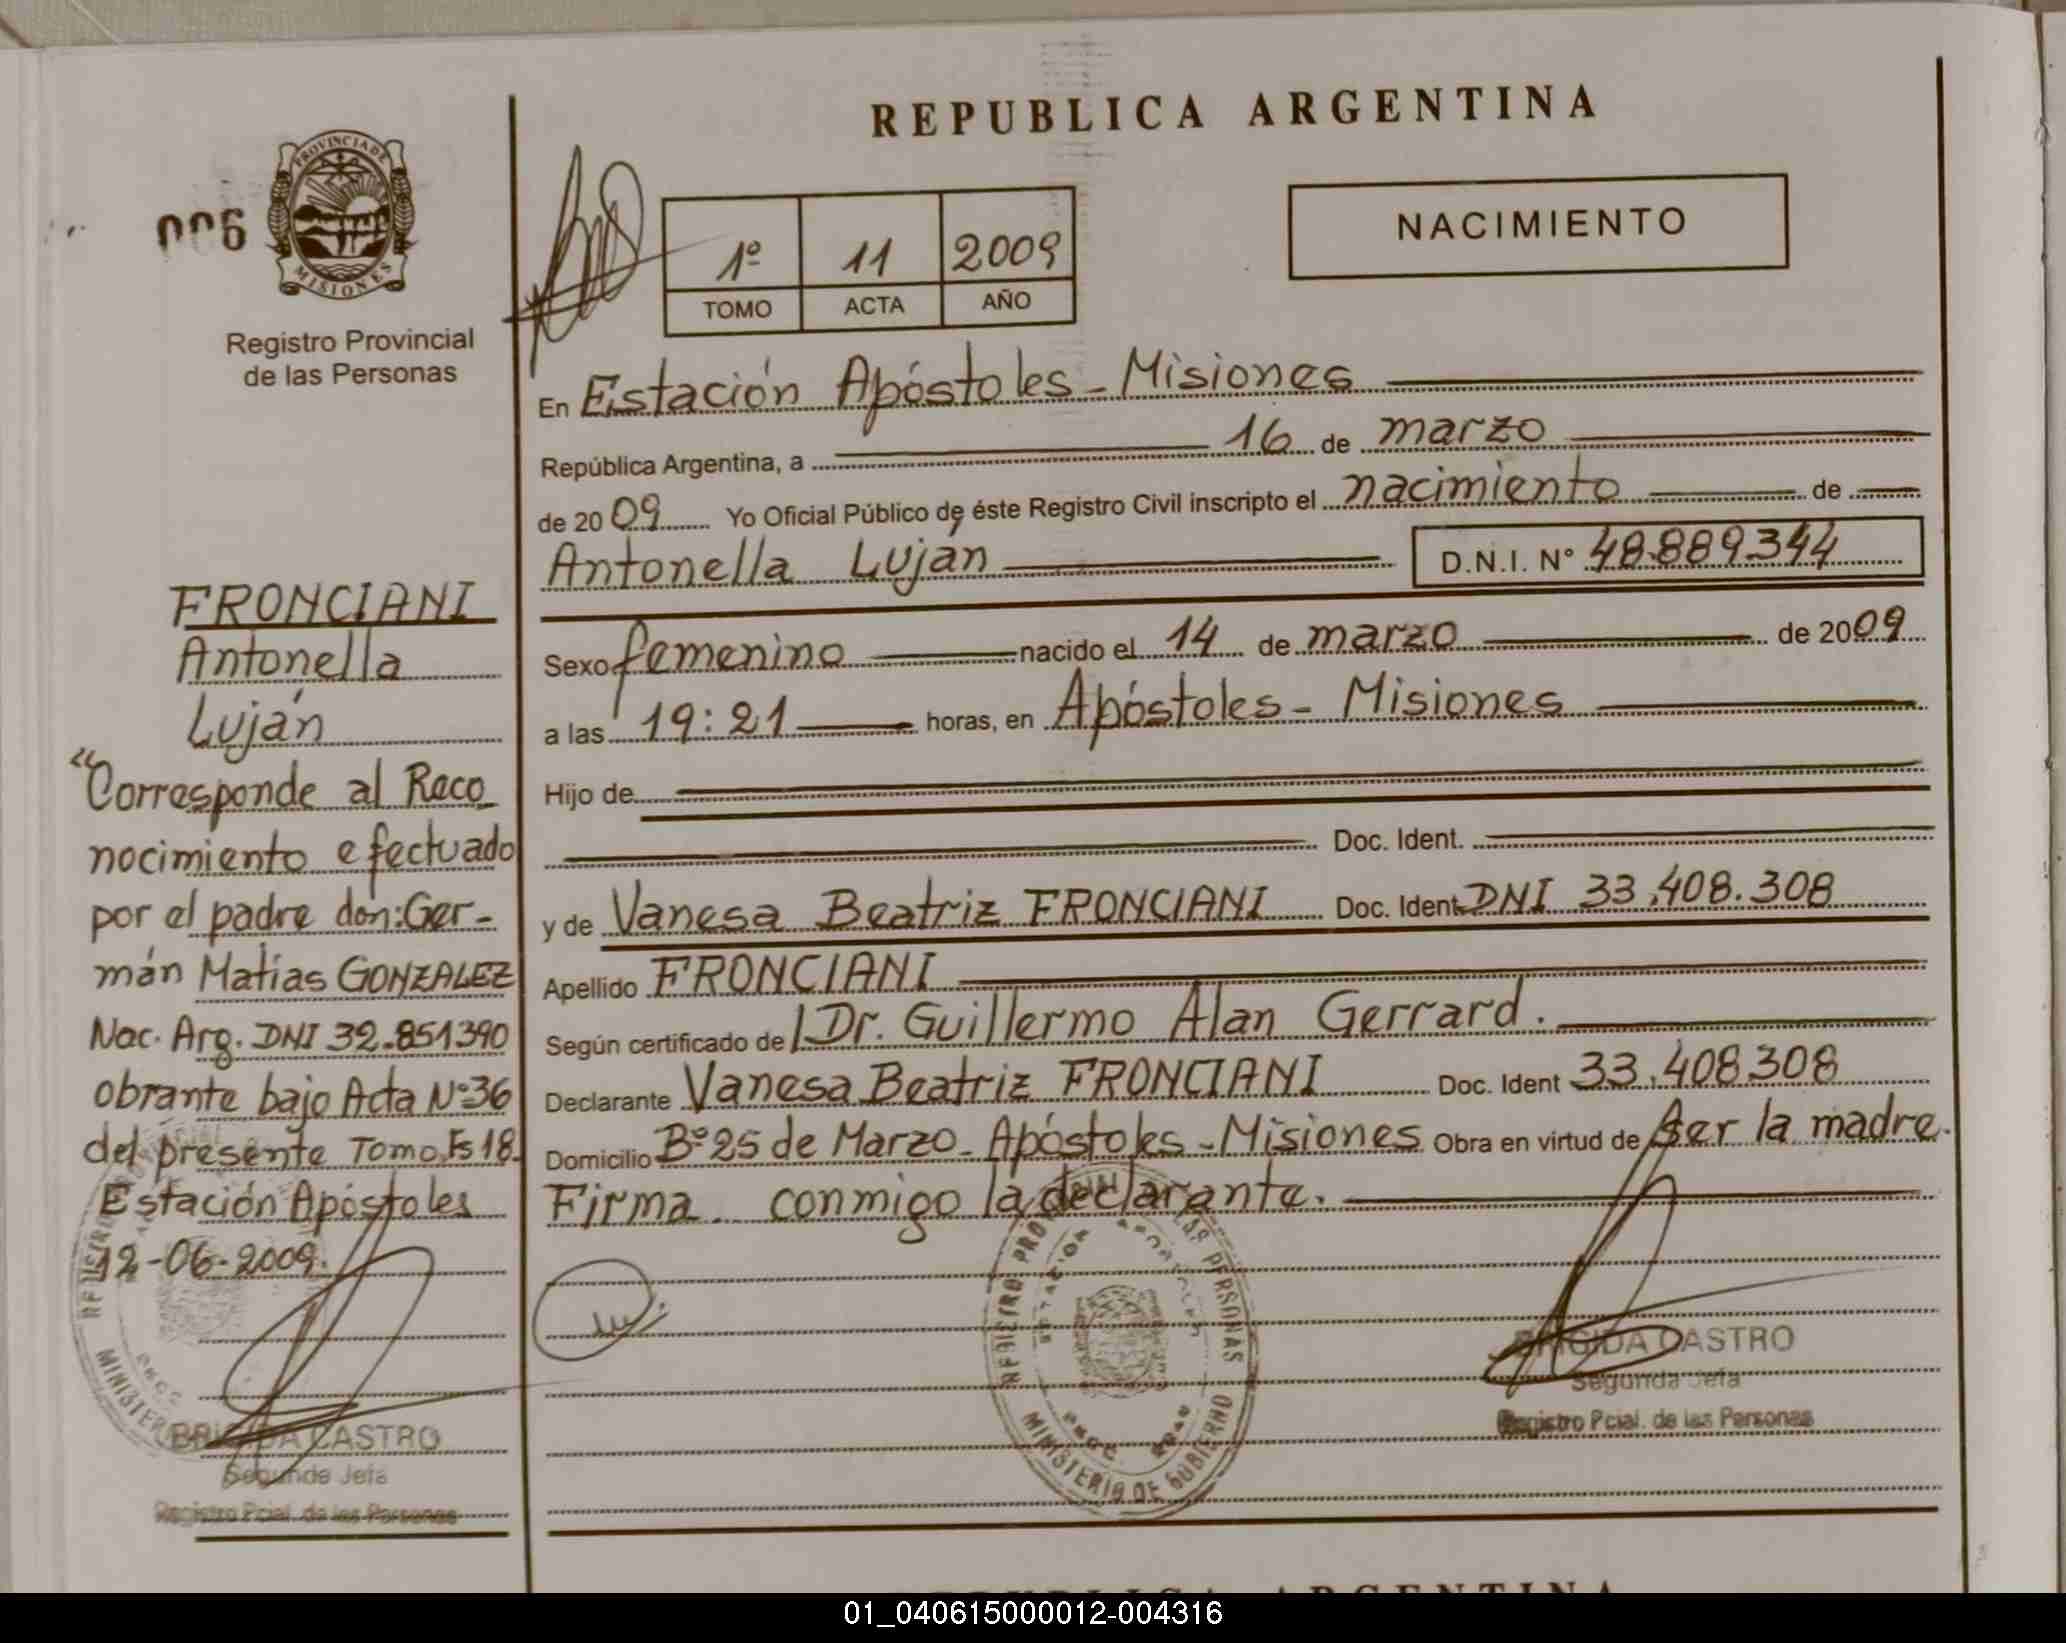 REPUBLICA ARGENTINA
006
PROVINCIA DE
MISIONES
Registro Provincial
de las Personas
1º 11 2009
TOMO ACTA AÑO
NACIMIENTO
En Estación Apóstoles - Misiones
República Argentina, a 16 de marzo
de 2009 Yo Oficial Público de éste Registro Civil inscripto el nacimiento de
Antonella Luján D.N.I. N° 48.889.344
Sexo femenino nacido el 14 de marzo de 2009
a las 19:21 horas, en Apóstoles - Misiones
Hijo de
Doc. Ident.
y de Vanesa Beatriz FRONCIANI Doc. Ident DNI 33.408.308
Apellido FRONCIANI
Según certificado de Dr. Guillermo Alan Gerrard.
Declarante Vanesa Beatriz FRONCIANI Doc. Ident 33.408308
Domicilio Bº 25 de Marzo - Apóstoles - Misiones Obra en virtud de Ser la madre.
Firma conmigo la declarante.
FRONCIANI
Antonella
Luján
"Corresponde al Reco_
nocimiento efectuado
por el padre don: Ger-
mán Matías GONZALEZ
Nac. Arg. DNI 32.851390
obrante bajo Acta Nº 36
del presente Tomo, Fs 18.
Estación Apóstoles
12-06-2009.
BRIGIDA CASTRO
Segunda Jefa
Registro Pcial. de las Personas
MINISTERIO DE GOBIERNO
BRIGIDA CASTRO
Segunda Jefa
Registro Pcial. de las Personas
REPUBLICA ARGENTINA
01_040615000012-004316